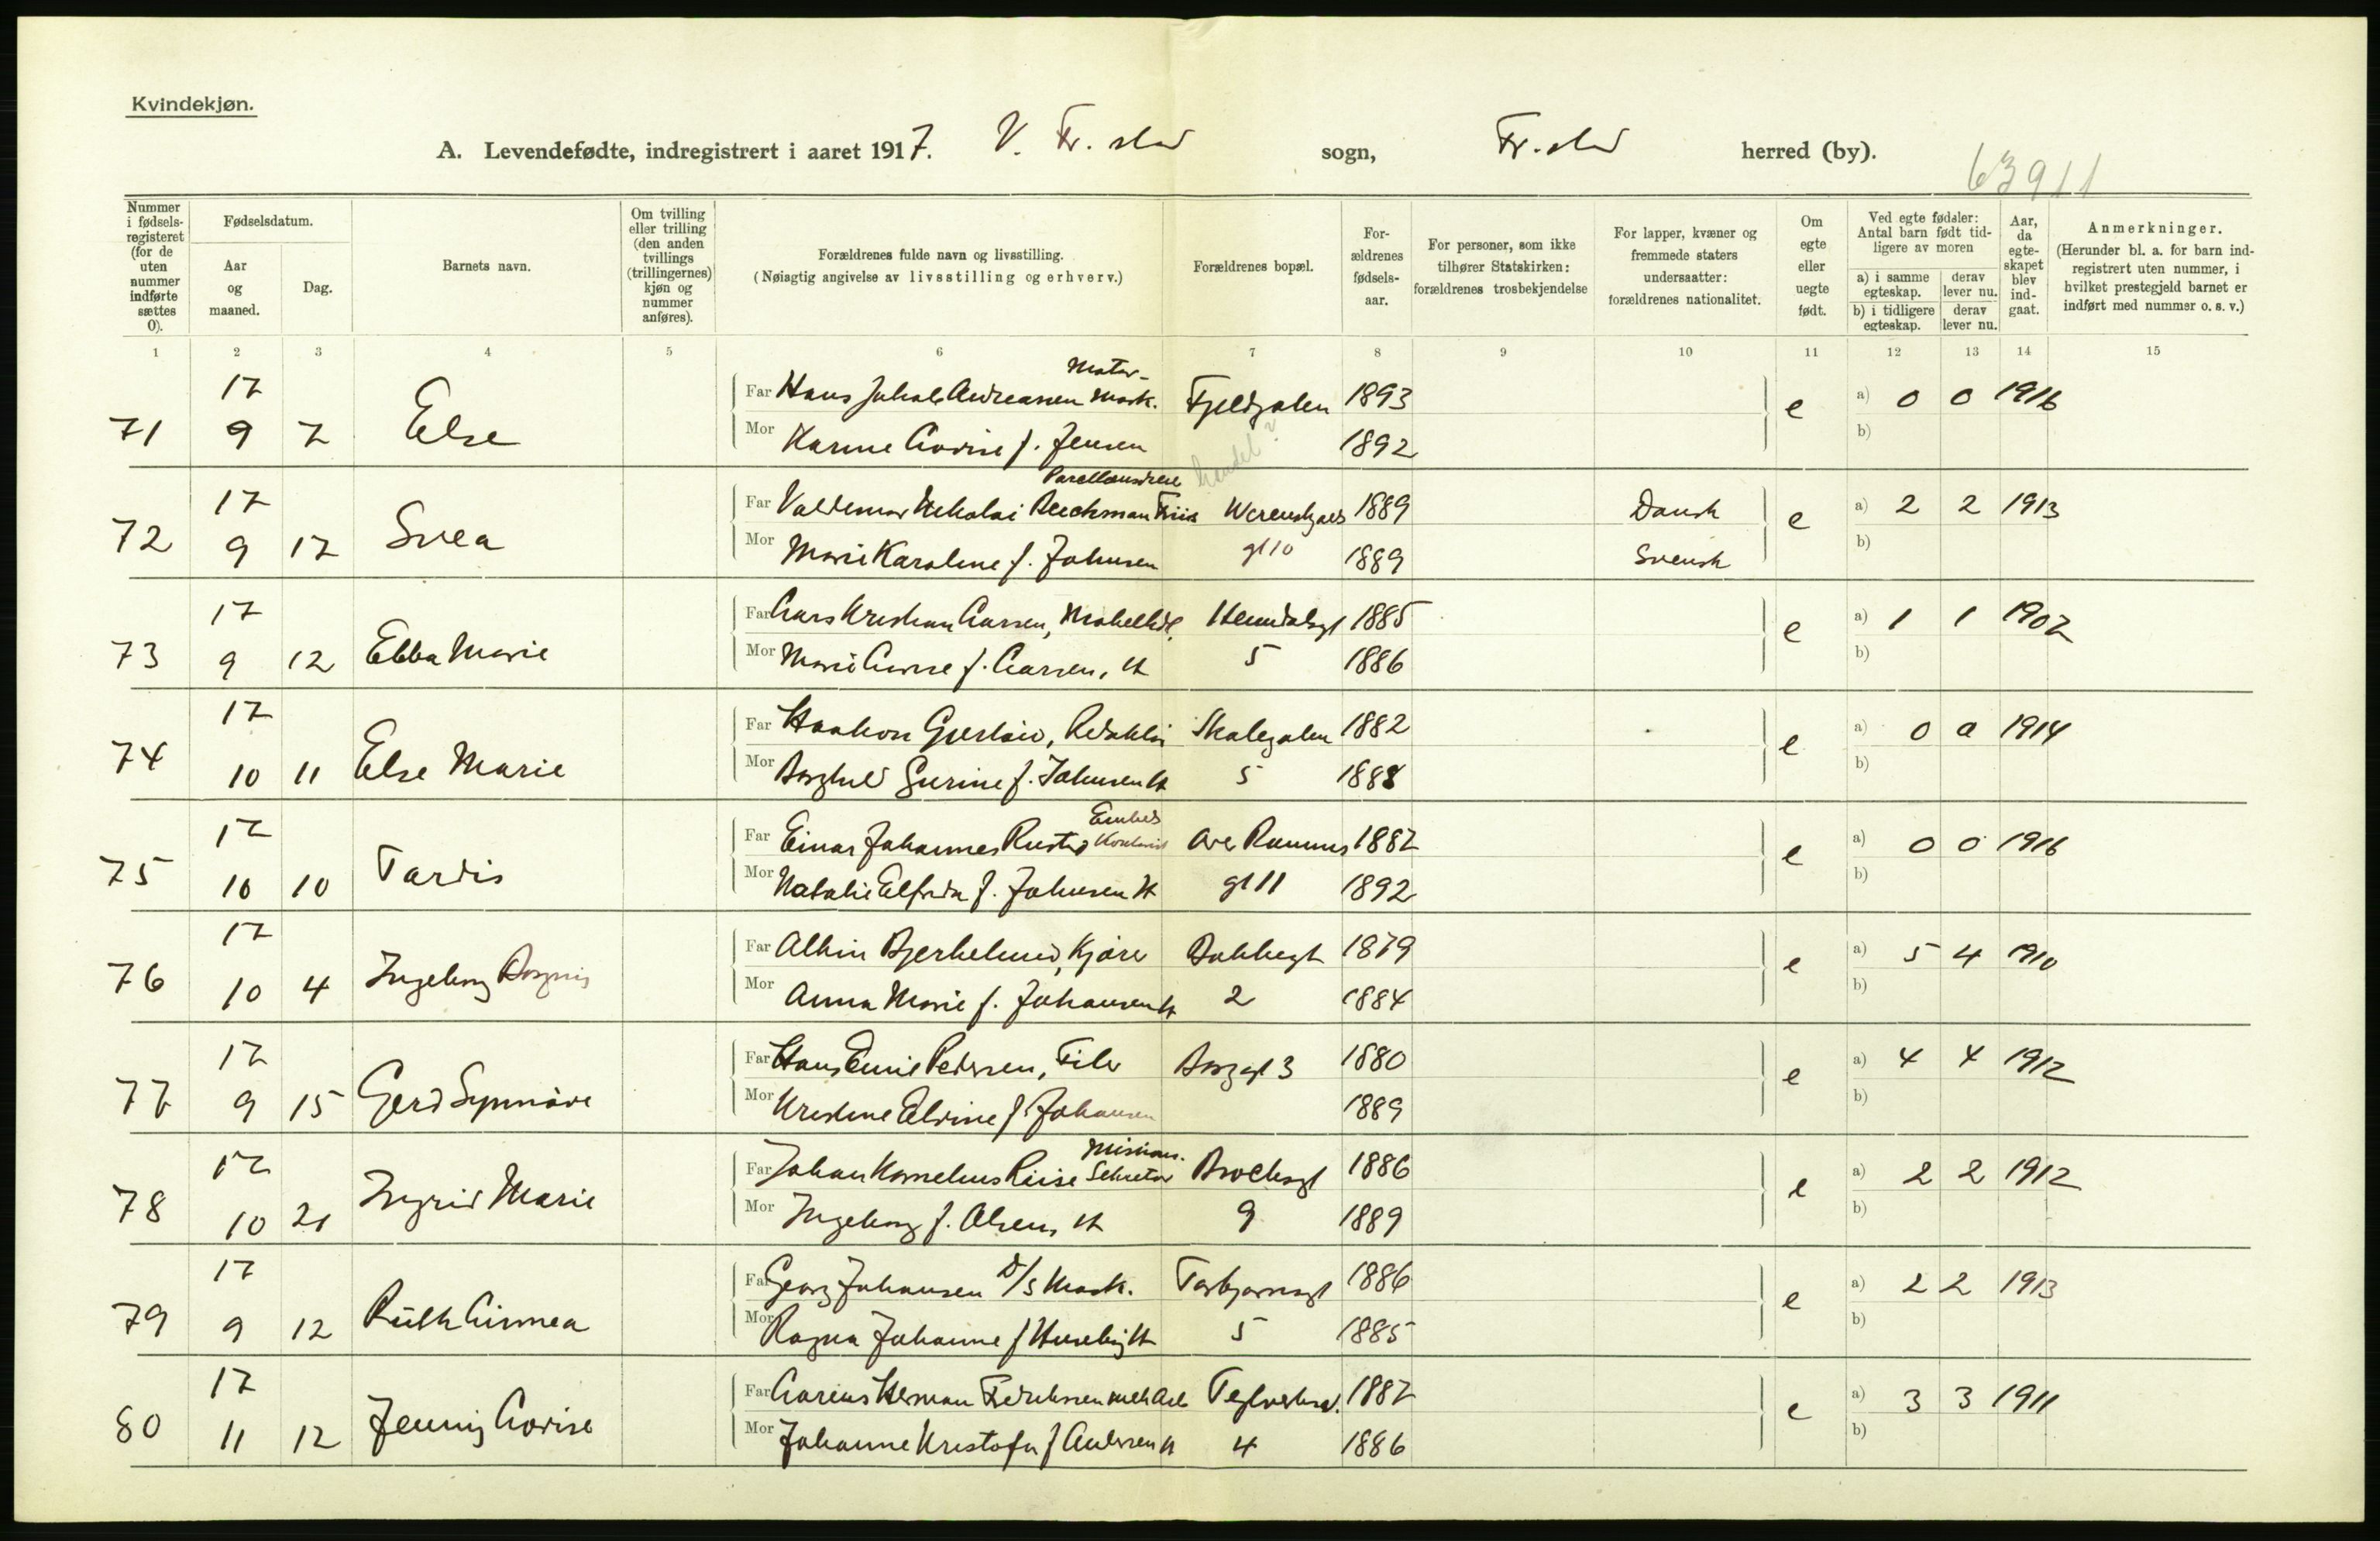 Kvindekjøn.
A. Levendefødte, indregistrert i aaret 1917. V. Fr.stad sogn, Fr.stad herred (by).
63911
Nummer i fødselsregisteret (for de uten nummer indførte sættes 0).
Fødselsdatum.
Aar og maaned.
Dag.
Barnets navn.
Om tvilling eller trilling (den anden tvillings (trillingernes) kjøn og nummer anføres).
Forældrenes fulde navn og livsstilling.
(Nøiagtig angivelse av livsstilling og erhverv.)
Forældrenes bopæl.
Forældrenes fødselsaar.
For personer, som ikke tilhører Statskirken: forældrenes trosbekjendelse
For lapper, kvæner og fremmede staters undersaatter: forældrenes nationalitet.
Om egte eller uegte født.
Ved egte fødsler: Antal barn født tidligere av moren
a) i samme egteskap. derav lever nu.
b) i tidligere egteskap. derav lever nu.
Aar, da egteskapet blev indgaat.
Anmerkninger.
(Herunder bl. a. for barn indregistrert uten nummer, i hvilket prestegjeld barnet er indført med nummer o. s. v.)
1 2 3 4 5 6 7 8 9 10 11 12 13 14 15
17 Far Hans Jakob Andreassen Motor- mask. 1893 e a) 0 0 1916
71 9 7 Else Mor Karine Lovise f. Jensen 1892 b)
handel?
17 Far Valdemar Nikolai 1889 Dansk e a) 2 2 1913
72 9 17 Svea Mor Marie Karoline f. Johnsen gt 10 1889 Svensk b)
17 Far Lars Kristian Larsen, 1885 e a) 1 1 1907
73 9 12 Ebba Marie Mor Marie Lovise f. Larsen, H 5 1886 b)
17 Far Haakon Gjerløw, Redaktør 1882 e a) 0 0 1914
74 10 11 Else Marie Mor Borghild Gurine f. Johnsen H 5 1888 b)
17 Far Einar Johannes Rustad 1887 e a) 0 0 1916
75 10 10 Tordis Mor Natalie Elfrida f. Johnsen H gt 11 1892 b)
17 Far Albin Bjerkelund, Kjører Bakkegt 1879 e a) 5 4 1910
76 10 4 Ingeborg Mor Anna Marie f. Johansen H 2 1884 b)
17 Far Hans Emil Pedersen, Filer Borggt 3 1880 e a) 4 4 1912
77 9 15 Gerd Synnøve Mor Kristine Elvine f. Johansen 1889 b)
17 Far Johan Kornelius Riise Misions. Sekretær Brochsgt 1886 e a) 2 2 1912
78 10 21 Ingrid Marie Mor Ingeborg f. Olsen, H 9 1889 b)
17 Far Georg Johansen D/S Mask. Torbjørnsgt 1886 e a) 2 2 1913
79 9 12 Ruth Linnea Mor Ragna Johanne f Huseby H 5 1885 b)
17 Far Herman Fredriksen Teglverksv. 1887 e a) 3 3 1911
80 11 12 Jenny Lovise Mor Johanne Kristofa f Andersen H 4 1886 b)